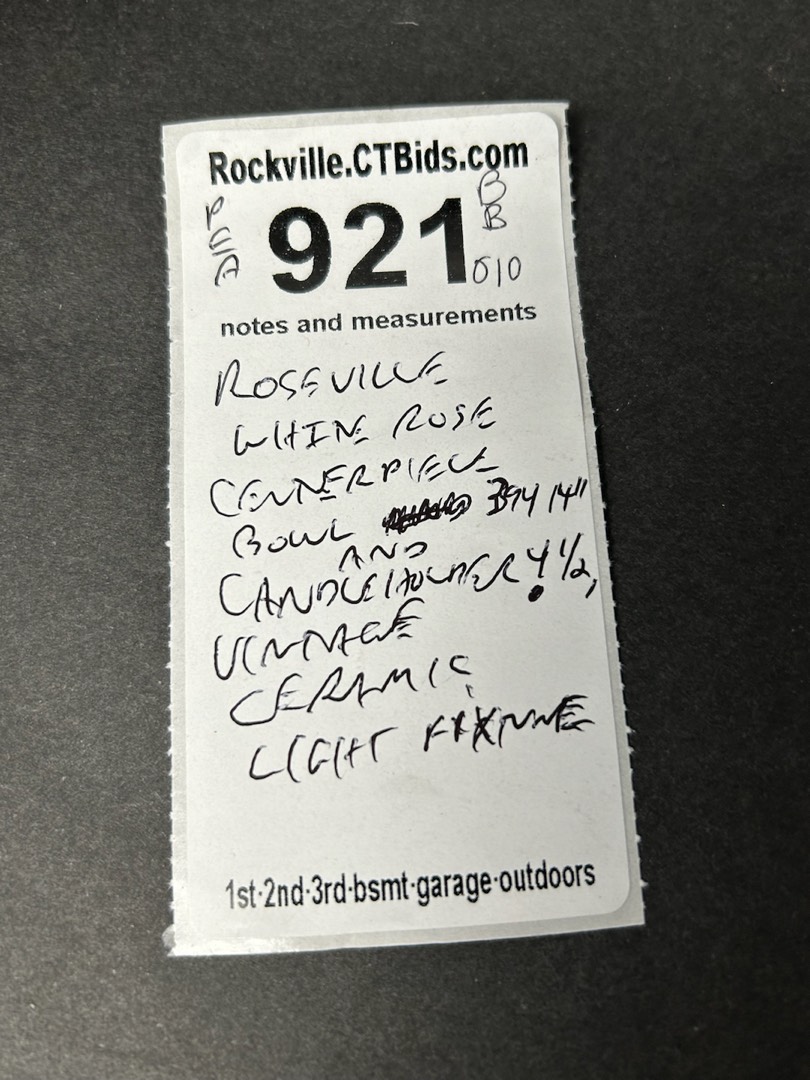 Rockville.CTBids.com
PEA
921
BB
010
notes and measurements
ROSEVILLE
WHITE ROSE
CENTERPIECE
BOWL 394 14"
AND
CANDLEHOLDER 4 1/2,
VINTAGE
CERAMIC
LIGHT FIXTURE
1st·2nd·3rd·bsmt·garage·outdoors